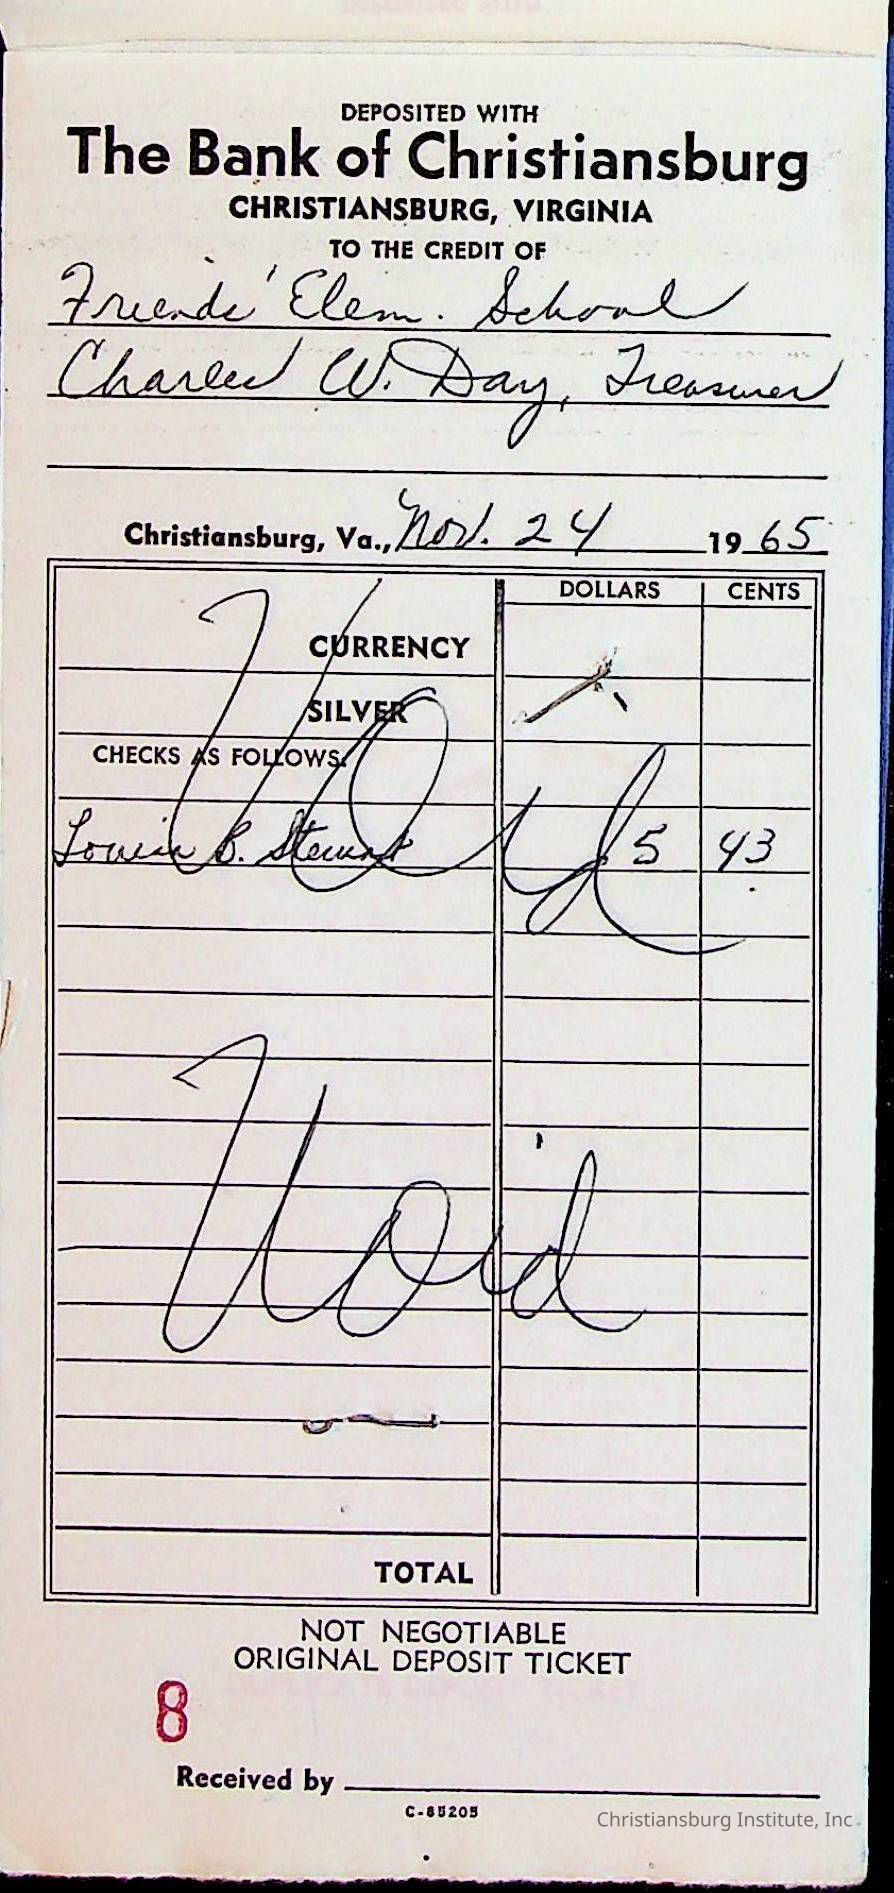 DEPOSITED WITH
The Bank of Christiansburg
CHRISTIANSBURG, VIRGINIA
TO THE CREDIT OF
Friends' Elem. School
Charles W. Day, Treasurer
Christiansburg, Va., Nov. 24 1965
DOLLARS CENTS
CURRENCY
SILVER
CHECKS AS FOLLOWS:
Void
Louisa B. Stewart 5 43
Void
TOTAL
NOT NEGOTIABLE
ORIGINAL DEPOSIT TICKET
8
Received by
C-85205
Christiansburg Institute, Inc.